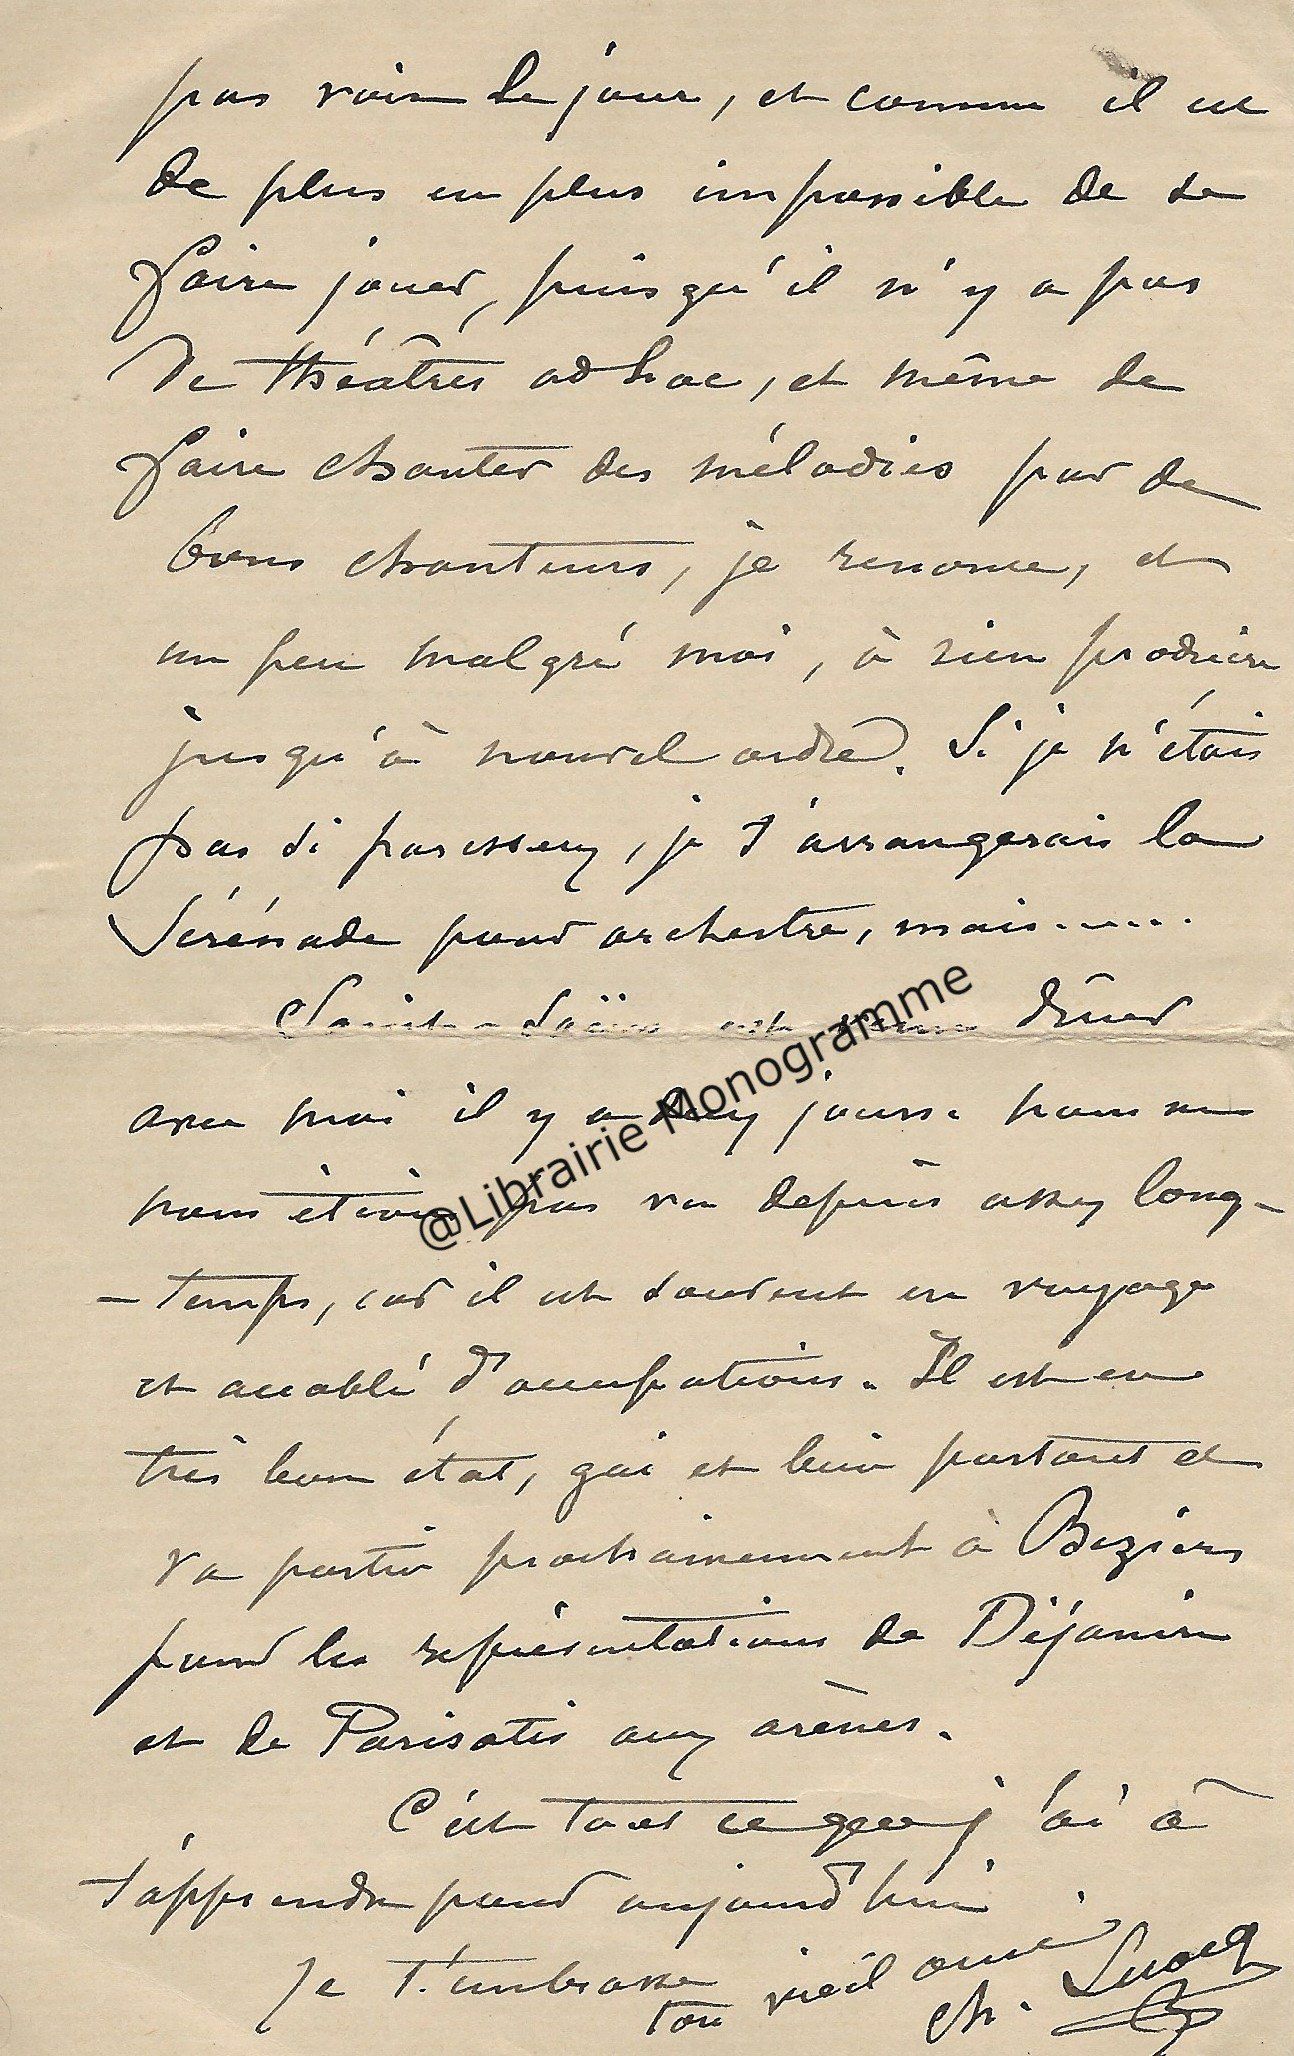 pas voir le jour, et comme il est
de plus en plus impossible de se
faire jouer, puisqu'il n'y a pas
de théâtres ad hoc, et même de
faire chanter des mélodies par de
bons chanteurs, je renonce, et
un peu malgré moi, à rien produire
jusqu'à nouvel ordre. Si je n'étais
pas si paresseux, je t'arrangerais la
Sérénade pour orchestre, mais.....
Saint-Saëns est venu dîner
avec moi il y a deux jours. Nous ne
nous étions pas vu depuis assez long-
-temps, car il est souvent en voyage
et accablé d'occupations. Il est en
très bon état, gai et bien portant et
va partir prochainement à Beziers
pour les représentations de Déjanire
et de Parisatis aux arènes.
C'est tout ce que j'ai à
t'apprendre pour aujourd'hui.
Je t'embrasse
ton vieil ami
Ch.
@Librairie Monogramme